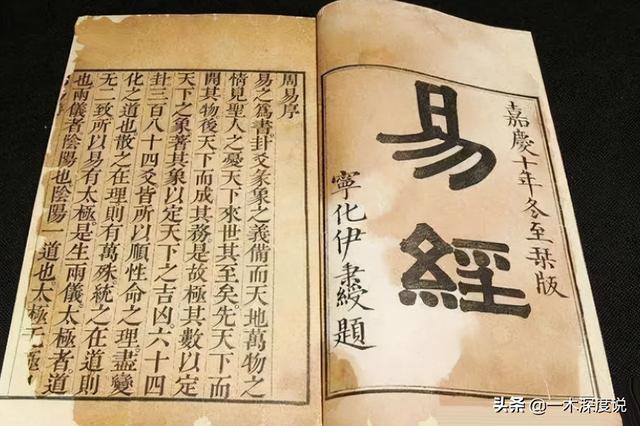 嘉慶十年冬至栞版
易經
寧化伊秉綬題
周易序
易之爲書卦爻彖象之義備而天地萬物之
情見聖人之憂天下來世其至矣。先天下而
開其物後天下而成其務是故極其數以定
天下之象著其象以定天下之吉凶。六十四
卦三百八十四爻皆所以順性命之理。盡變
化之道也散之在理則有萬殊。統之在道則
无二致所以易有太極。是生兩儀太極者。道
也兩儀者陰陽也陰陽一道也太極无極
头条 @一木深度说